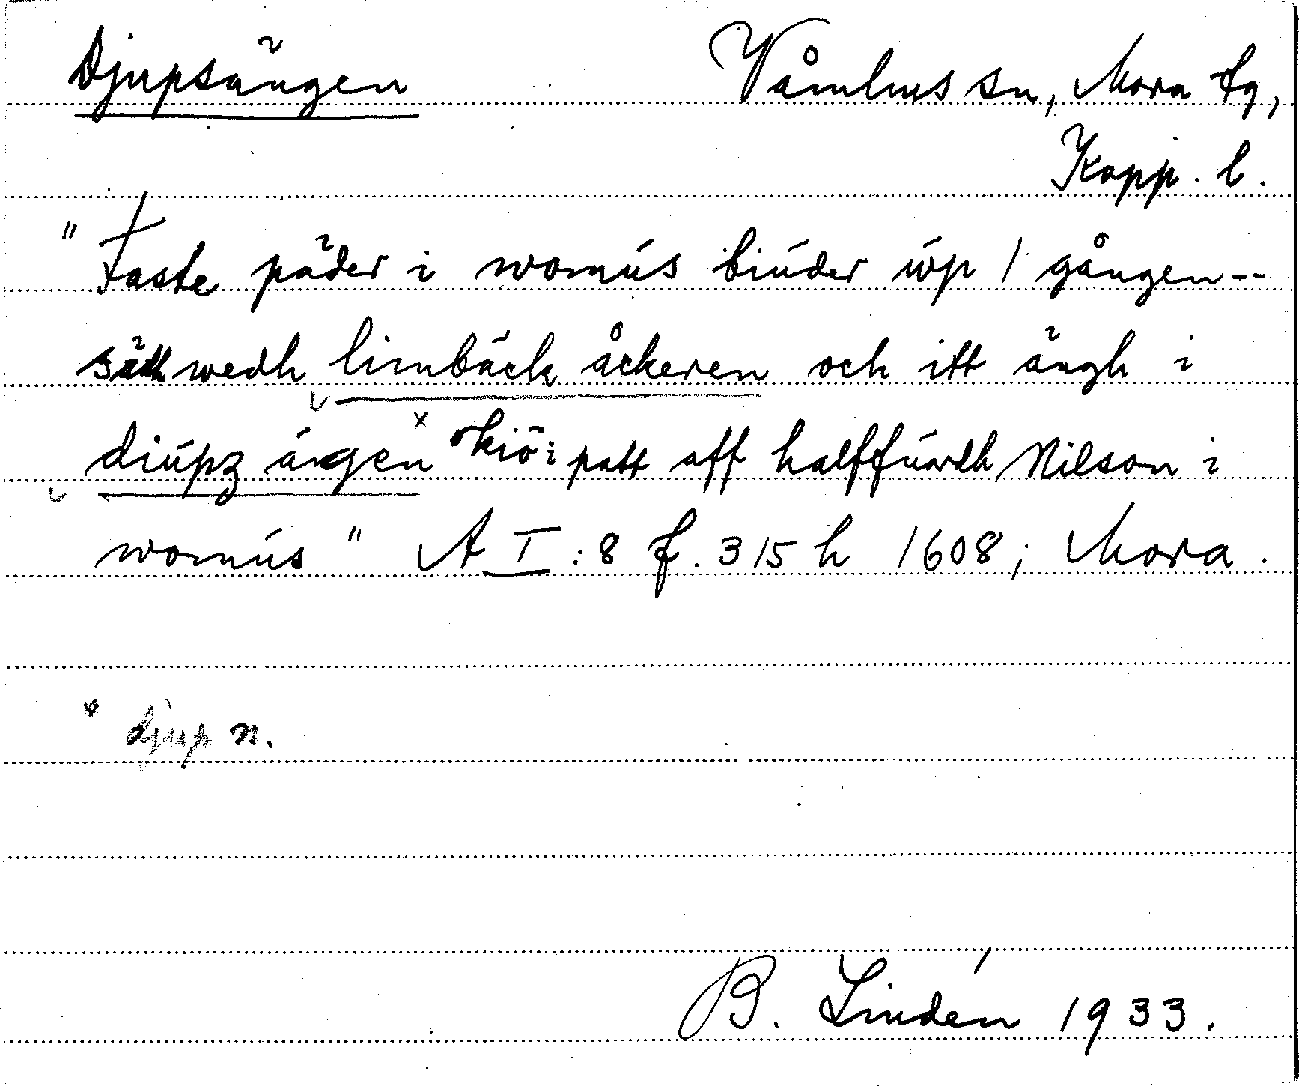 Djupsängen Våmhus sn, Mora tg,
Kopp. l.
" Faste päder i womús biúder úp 1 gången--
sätt wedh limbäck åckeren och itt ängh i
diúpz ángen x kiö: patt aff halffúardh Nilson i
womús " A I : 8 f. 315 h 1608; Mora.
x djup n.
B. Lindén 1933.